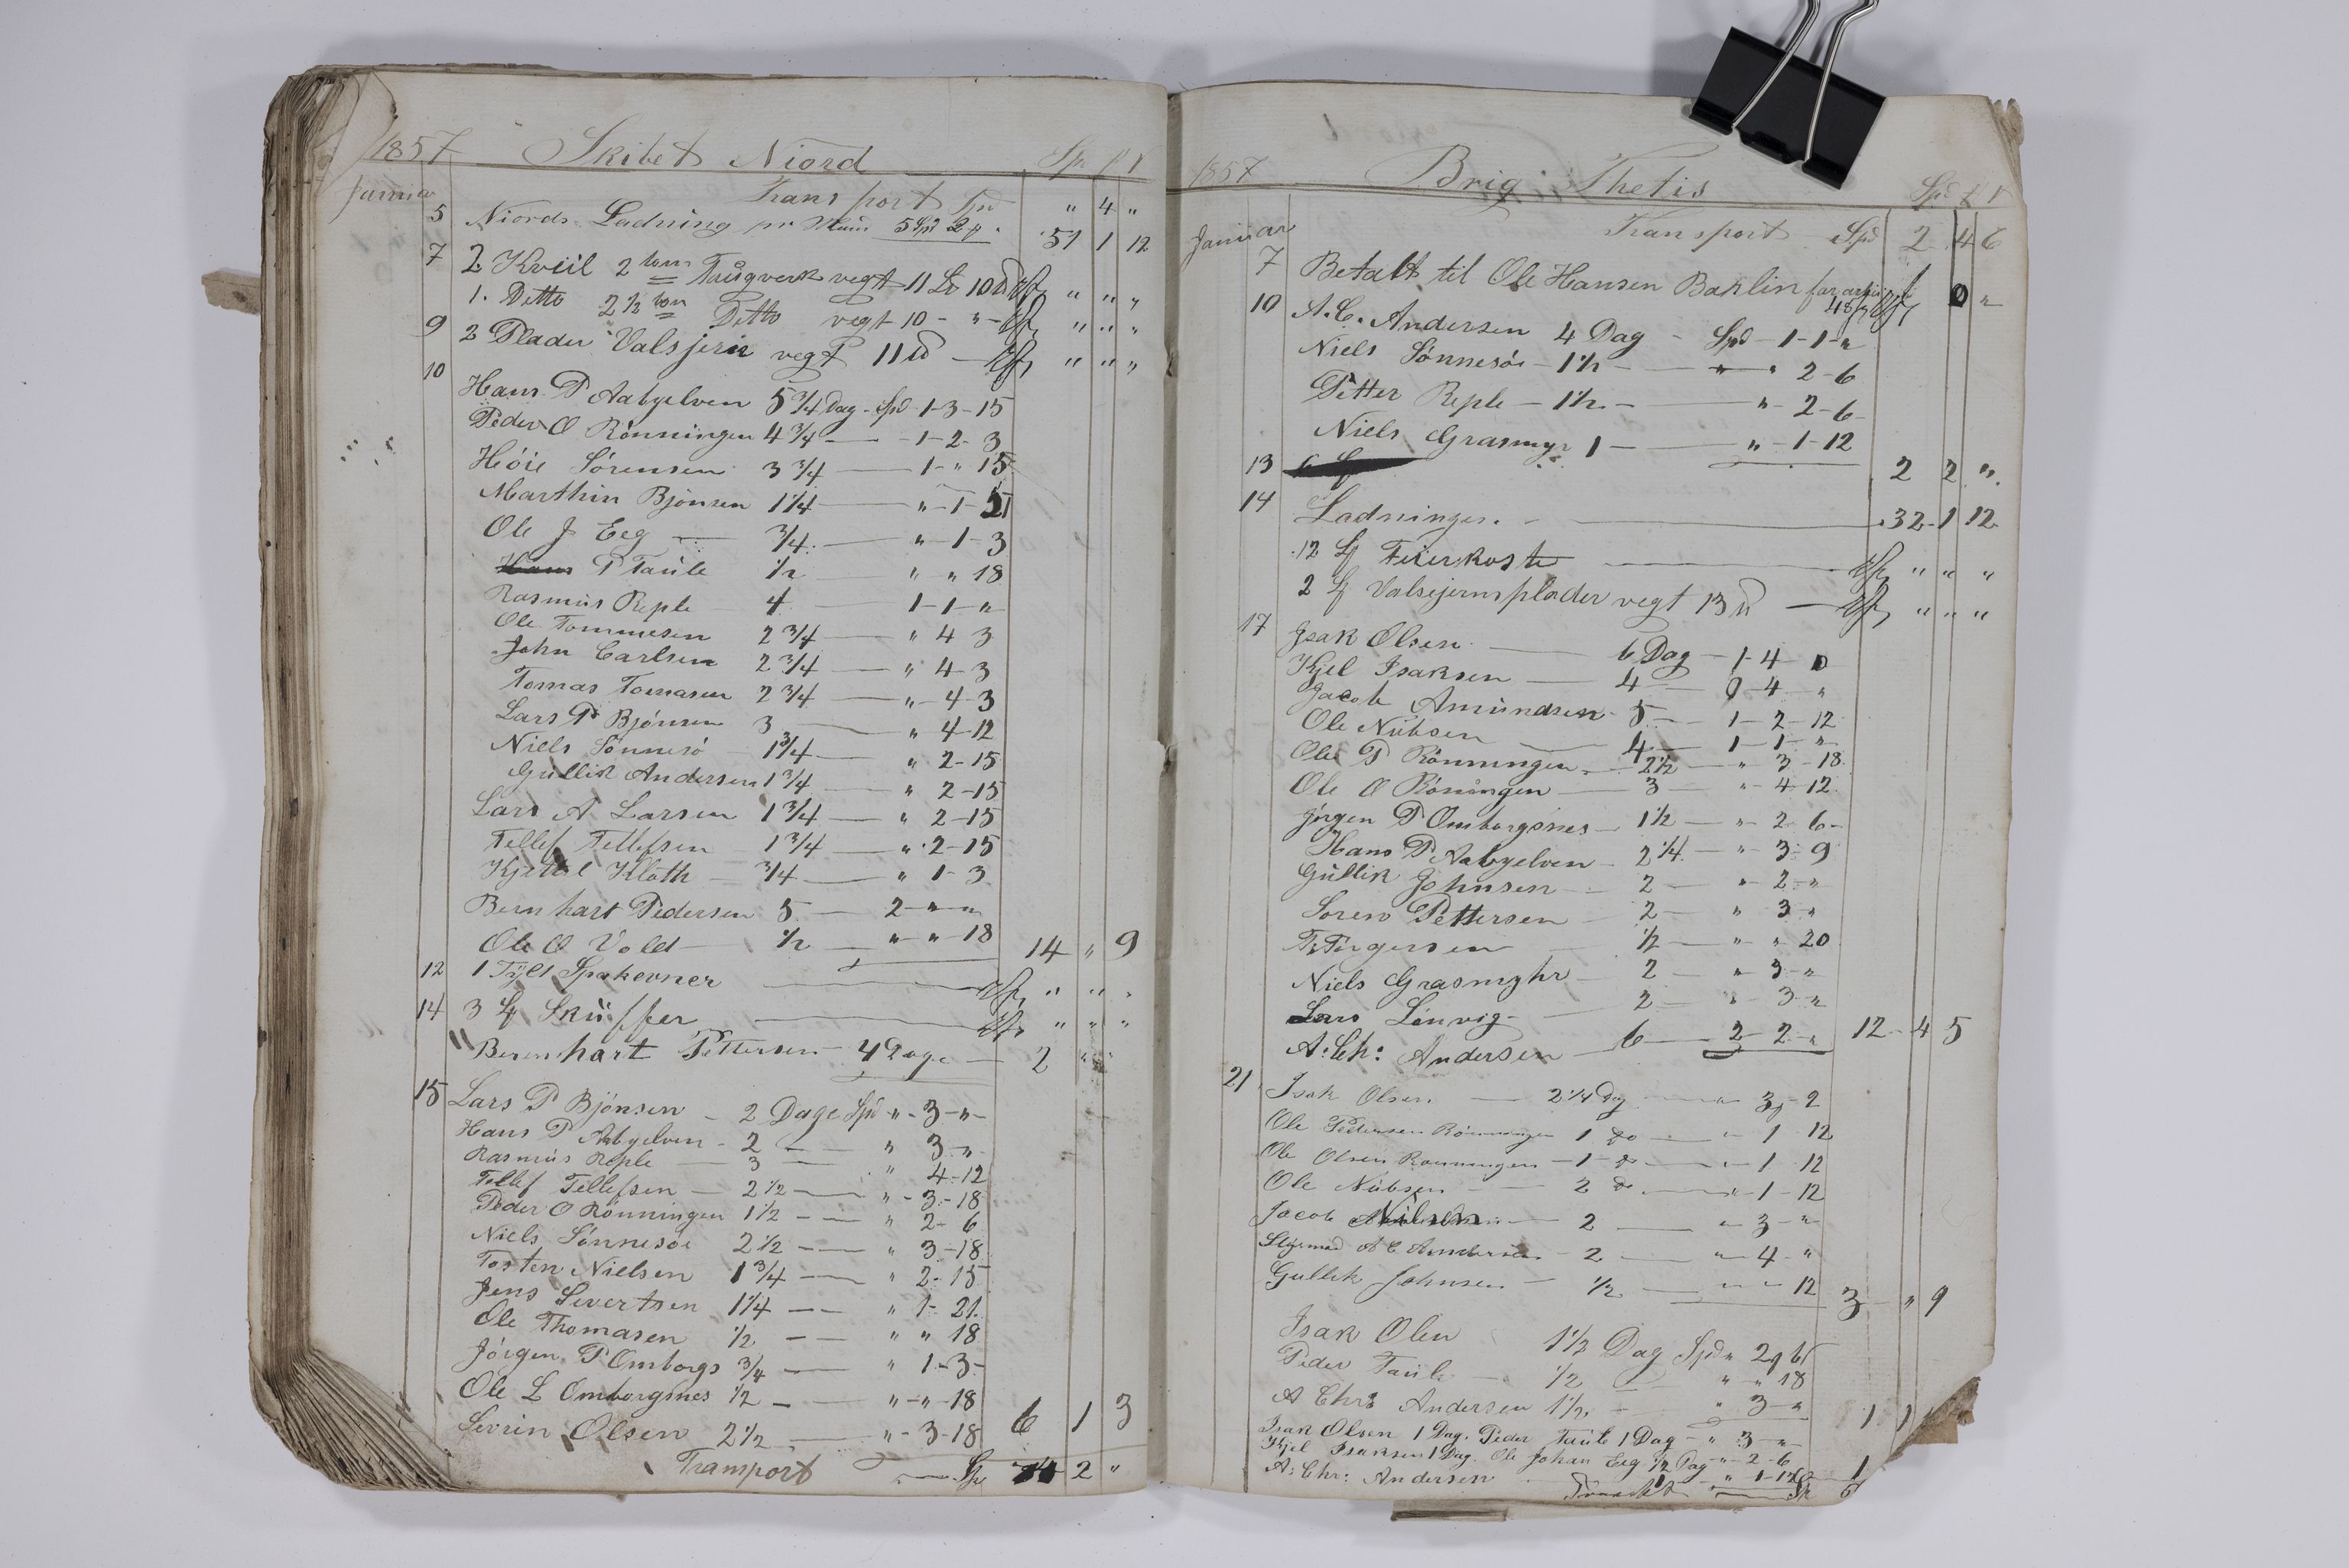 1857 Skibet Niord Sp ƒ ſ
Januar
Transport Spd " 4 "
5 Niords Ladning pr Main 5 Spd 2 ƒ . 51 1 12
7 2 Kveil 2 tom Taugverk vegt 11 Lb 10 " " "
1. Ditto 2½ tom Ditto vegt 10 - " - " " "
9 2 Plader Valsjern vegt 11 — " " "
10
Hans P Aabyelven 5¾ Dag - Spd - 1-3-15
Peder O Rönningen 4¾ — - 1-2-3
Höie Sörensen 3¾ — 1-"-15
Marthin Bjönsen 1¼ — "-1-21
Ole J Eeg — ¾ — "-1-3
P Taule ½ " " 18
Rasmus Reple 4 1-1-"
Ole Tommesen 2¾ — " 4 3
John Carlsen 2¾ — " 4-3
Tomas Tomasen 2¾ — " - 4-3
Lars P Bjönsen 3 — " 4-12
Niels Sönnesö 1¾ — " 2-15
Gullik Andersen 1¾ " 2-15
Lars A Larsen 1¾ — " 2-15
Tellef Tellefsen 1¾ — " 2-15
Kjettel Kloth — ¾ — " 1-3
Bernhart Pedersen 5 — 2-"-"
Ole O Vold — ½ — "-"-18 14 " 9
12 1 Tylt Spakevner — " " "
14 3 Skuffer — " " "
" Bernhart Pettersen 4 Dage — 2 " "
15 Lars P Bjönsen - 2 Dage Spd " - 3-"-
Hans P Aabyelven - 2 — " 3-"-
Rasmus Reple — 3 — " 4-12
Tellef Tellefsen — 2½ — " - 3-18
Peder O Rönningen 1½ - — " 2-6
Niels Sönnesöe 2½ - — " 3-18
Tosten Nielsen 1¾ — " 2-15
Jens Sivertsen 1¼ - — " 1-21
Ole Thomasen ½ - — " " 18
Jörgen P Omborgs ¾ — " 1-3-
Ole L Omborgsnes ½ - — "-"-18
Sevrin Olsen 2½ — "-3-18 6 1 3
Transport — Sp 74 2 "
1857 Brig Thetis Spd ƒ ſ
Januar Transport Spd 2 4 6
7 Betalt til Ole Hansen Baklin for 0 "
10 A.C. Andersen 4 Dag - Spd - 1-1-"
Niels Sönnesöe - 1½ — " 2-6
Petter Reple - 1½ - — "- 2-6-
Niels Grasmyr 1 — "-1-12
13 2 2 "
14 Ladningen — 32-1 12
12 Feierkoste — " " "
2 Valsjernsplader vegt 13 — " " "
17 Isak Olsen — 6 Dag - 1-4 0
Kjel Isaksen — 4 — 0 4 "
Jacob Amundsen - 5 — 1-2-12
Ole Nübsen — 4 — 1-1-"
Ole P Rönningen — 2½ — " 3-18
Ole O Röningen — 3 — " 4-12
Jörgen P Omborgsnes — 1½ — " 2-6-
Hans P Aabyelven - 2¼ — " 3-9
Gullik Johnsen — 2 — " 2-"
Soren Pettersen — 2 — " 3-"
T. Törgersen ½ — " " 20
Niels Grasmyhr — 2 — " 3-"
Lars Lönvig — 2 — " 3-"
A: Ch: Andersen — 6 — 2-2-" 12-4 5
21 Isak Olsen — 2¼ Dag — " 3-2
Ole Pedersen Rönningen 1 do — " 1 12
Ole Olsen Rönningen - 1 - do — "-1 12
Ole Nübsen — 2 do — "-1-12
Jacob Nilsen — 2 — "-3-"
Styrmd A C Andersen — 2 — " 4 "
Gullik Johnsen — ½ — "-"-12 3 " 9
Isak Olen 1½ Dag Spd " 2 6
Peder Taule — ½ " " 18
A Chr: Andersen 1½ — " 3-" 1 1
Isak Olsen 1 Dag. Peder Taule 1 Dag - " 3-"
Kjel Isaksen 1 Dag. Ole Johan Eeg ½ Dag - " 2-6
A: Chr: Andersen 1 " 1-12 1
Transport — Sp 5